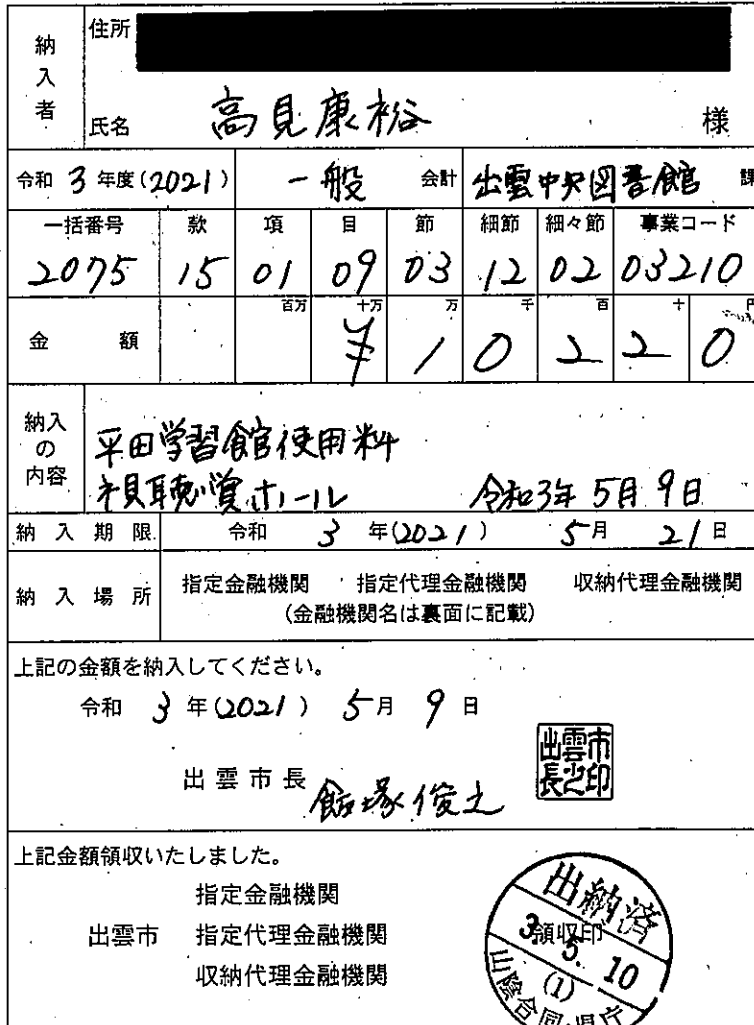 納入者
住所
氏名 高見康裕 様
令和 3 年度(2021) 一般 会計 出雲中央図書館 課
一括番号 款 項 目 節 細節 細々節 事業コード
2075 15 01 09 03 12 02 03210
百万 十万 万 千 百 十 円
金額 ¥10220
納入の内容
平田学習館使用料
視聴覚ホール 令和3年5月9日
納入期限 令和 3 年(2021) 5月 21日
納入場所 指定金融機関 指定代理金融機関 収納代理金融機関
(金融機関名は裏面に記載)
上記の金額を納入してください。
令和 3 年(2021) 5月 9日
出雲市長 飯塚俊之
出雲市長之印
上記金額領収いたしました。
指定金融機関
出雲市 指定代理金融機関
収納代理金融機関
出納済
領収印
3. 5. 10
(1)
山陰合同・県庁